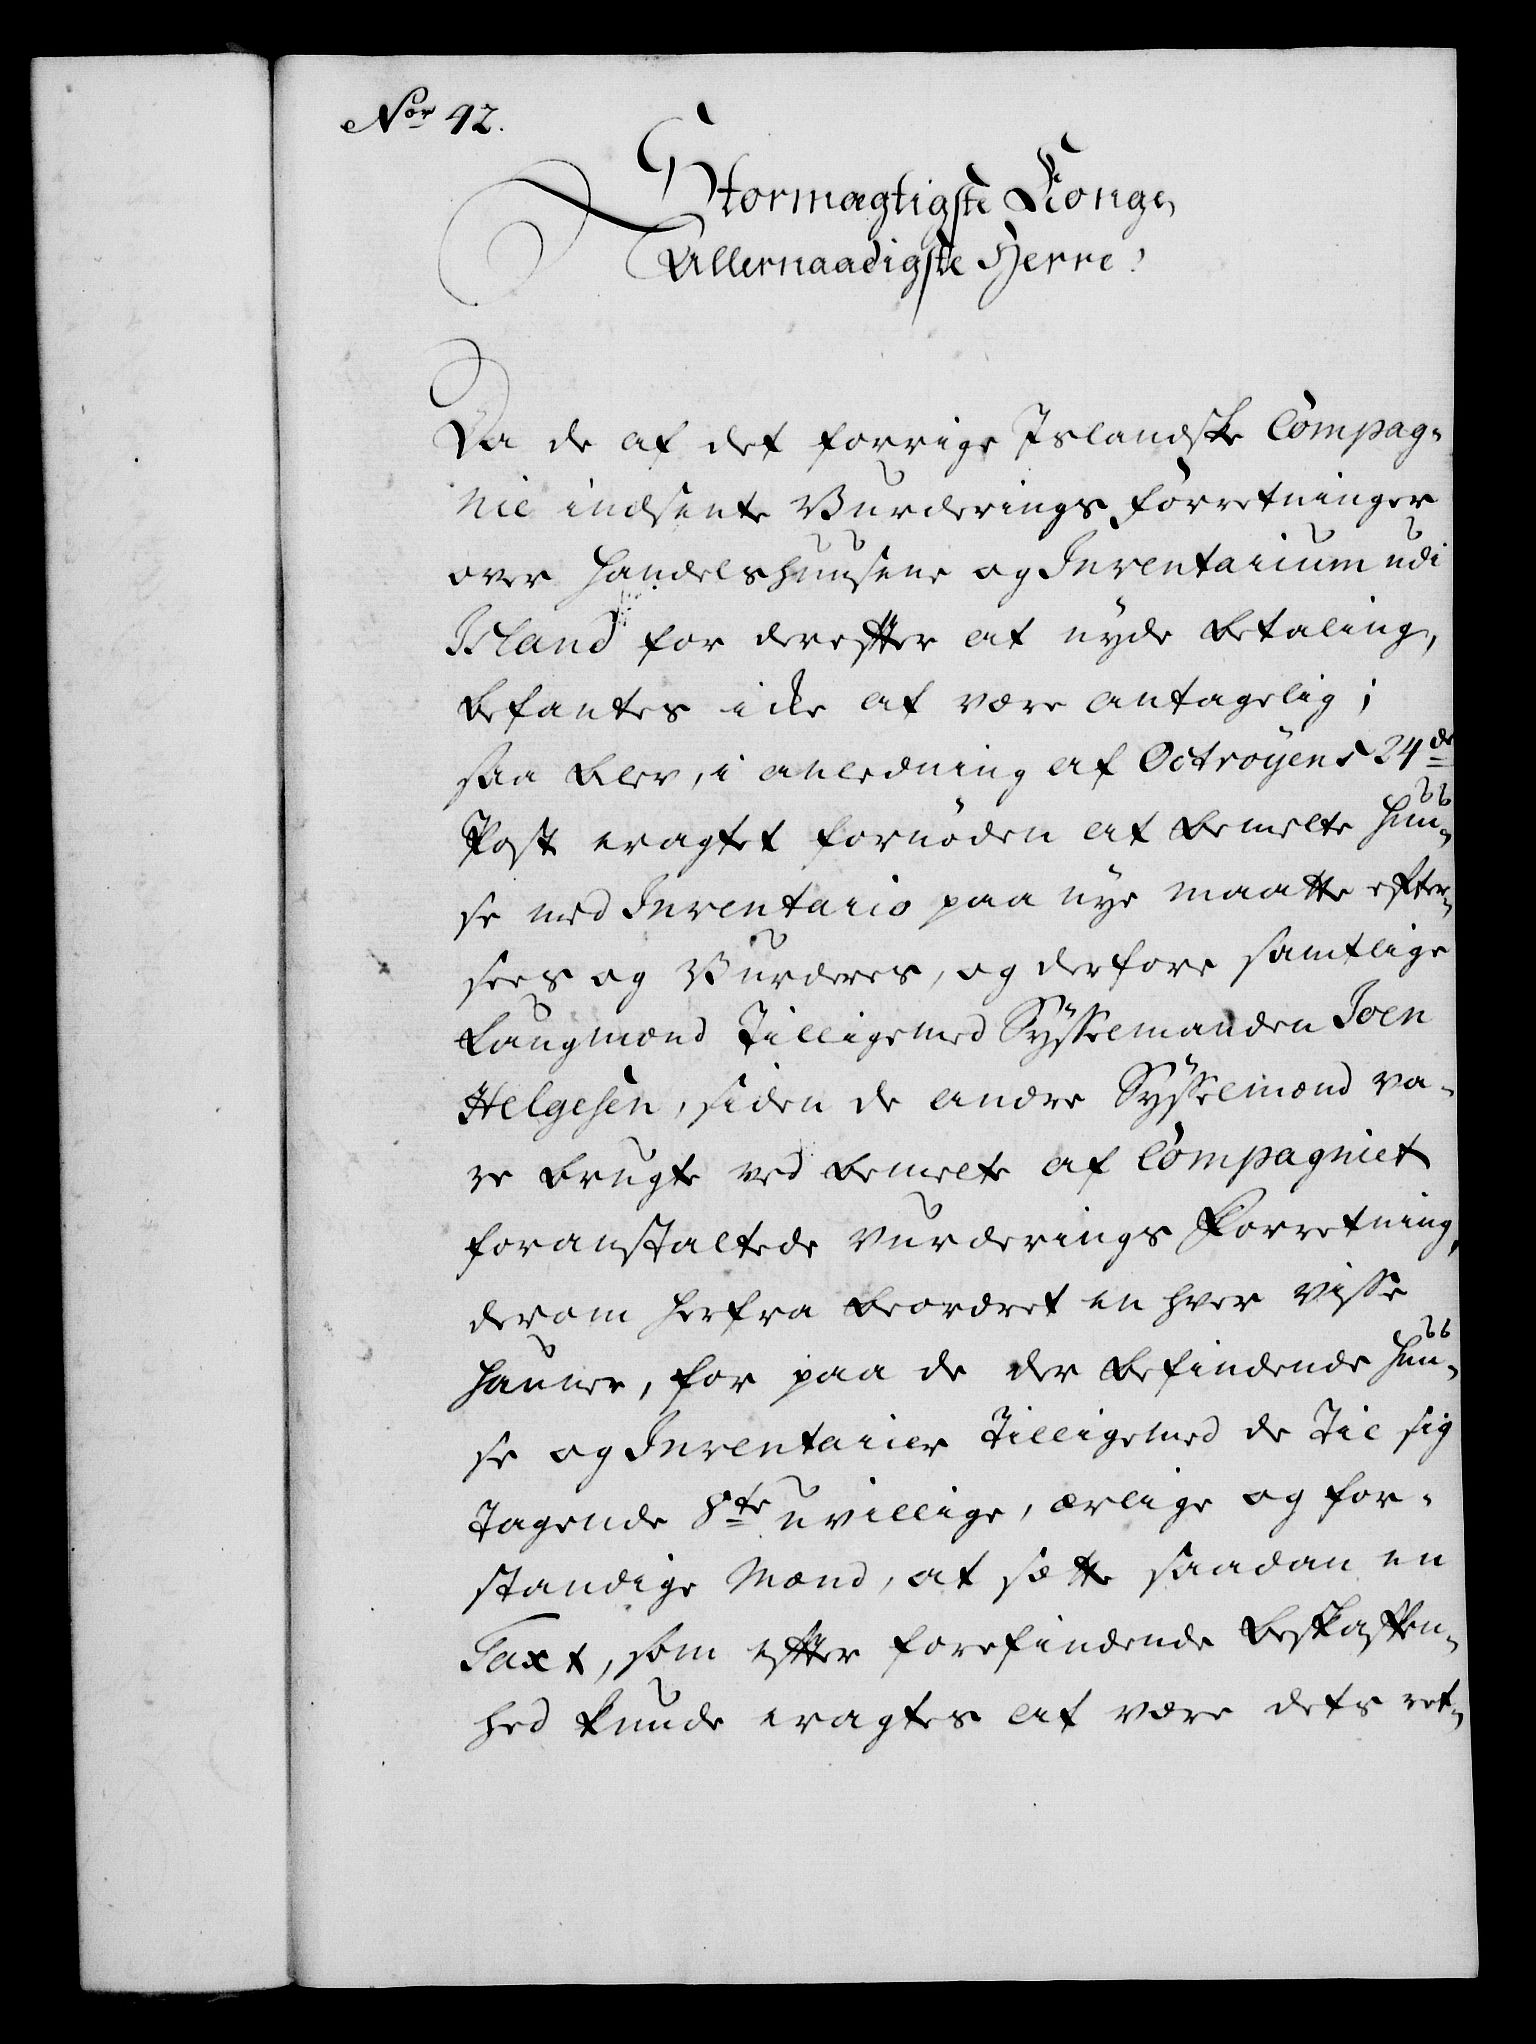 Nor 42.
Stormægtigste Konge,
Allernaadigste Herre!
Da de af det forrige Islandske Compag-
nie indsente Vurderings Forretninger
over Handelshuusene og Inventarium udi
Island for derefter at nyde Betaling,
befantes icke at være antagelig;
saa blev, i anledning af Octroyens 24de
Post eragtet fornøden at bemelte Huu-
se med Inventario paa nye maatte efter-
sees og Vurderes, og derfore samtlige
Laugmænd tilligemed Sysselmanden Joen
Helgesen, siden de andre Sysselmænd va-
re brugte ved bemelte af Compagniet
foranstaltede Vurderings Forretning,
derom herfra beordret en hver visse
Havner, for paa de der befindende Huu-
se og Inventarier tilligemed de til sig
tagende 8te uvillige, ærlige og for-
standige Mænd, at sætte saadan en
Taxt, som efter forefindende Beskaffen-
hed kunde eragtes at være dets ret-